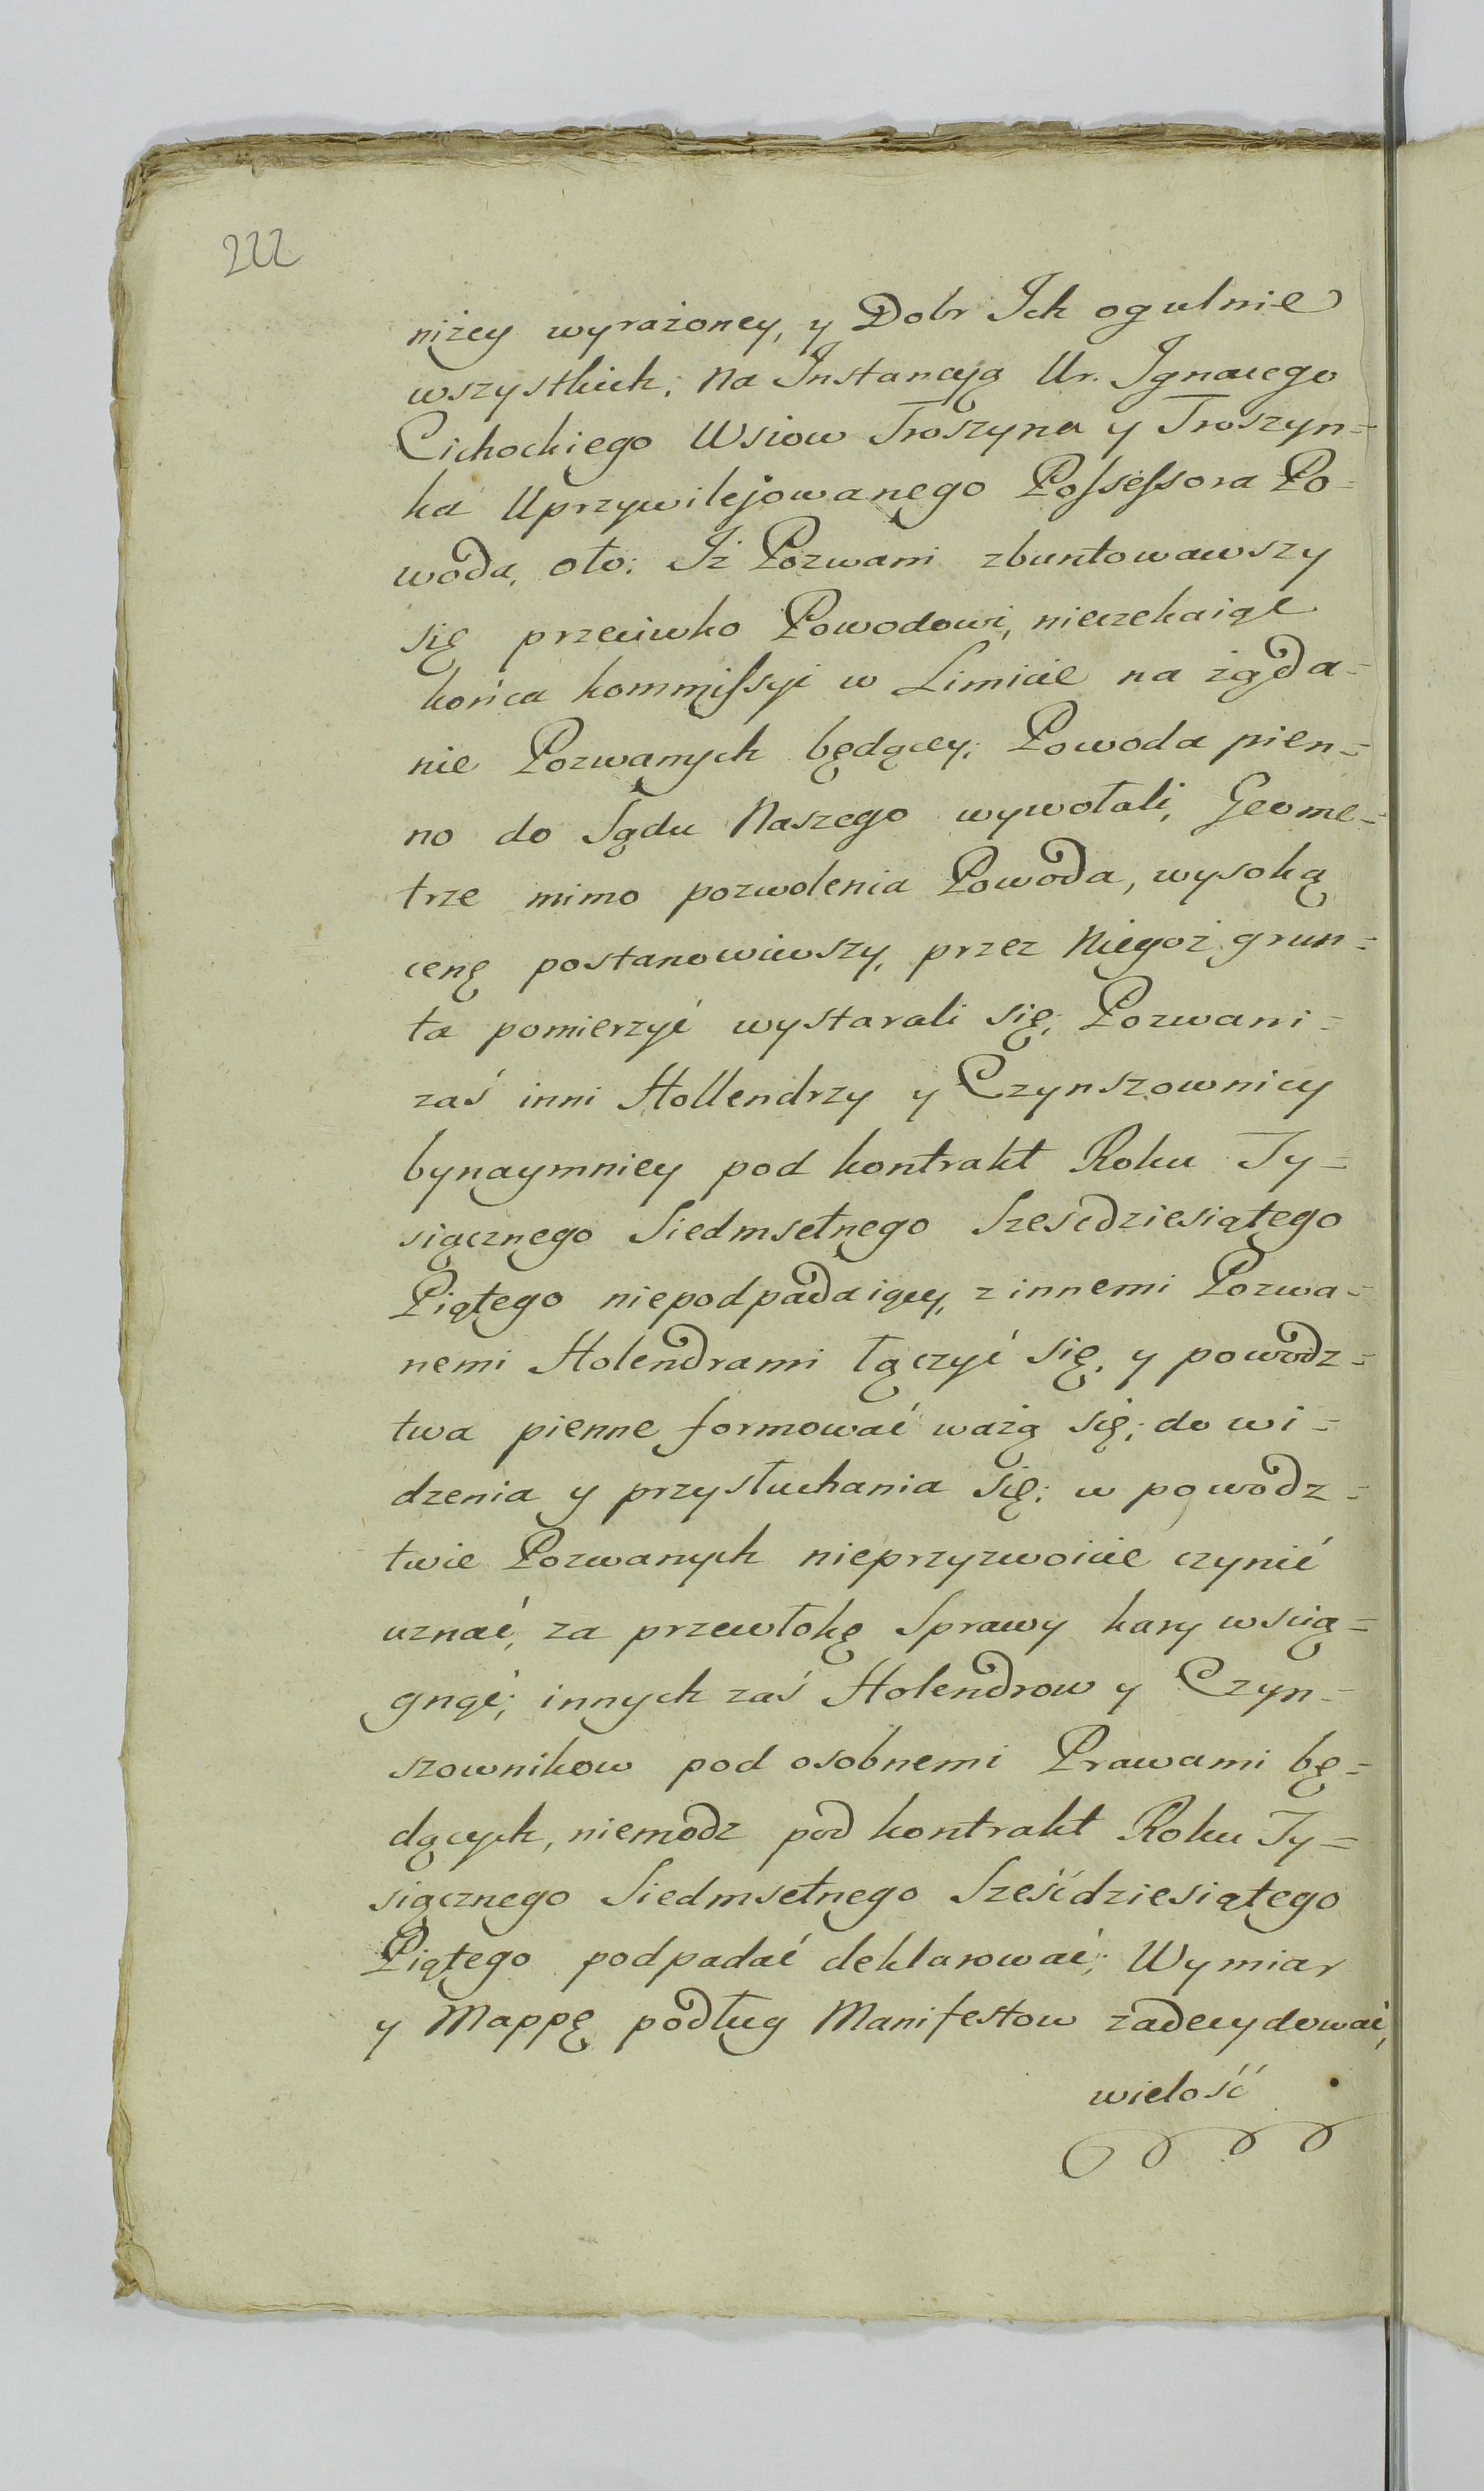 222
niżey wyrażoney, y Dobr Ich ogulnie
wszystkich; Na Instancyą Ur. Ignacego
Cichockiego Wsiow Troszyna y Troszyn=
ka Uprzywilejowanego Possessora Po=
woda, oto: Iż Pozwani zbuntowawszy
się przeciwko Powodowi, nieczekaiąc
końca kommissyi w Limicie na żąda=
nie Pozwanych będącey; Powoda pien=
no do Sądu Naszego wywołali, Geome=
trze mimo pozwolenia Powoda, wysoką
cenę postanowiwszy, przez Niegoż grun=
ta pomierzyć wystarali się; Pozwani=
zaś inni Hollendrzy y Czynszownicy
bynaymniey pod kontrakt Roku Ty=
siącznego Siedmsetnego Szescdziesiątego
Piątego niepodpadaiący, z innemi Pozwa=
nemi Holendrami łączyć się, y powodz=
twa pienne formować ważą się; do wi=
dzenia y przysłuchania się; w powodz=
twie Pozwanych nieprzyzwoicie czynić
uznać, za przewłokę Sprawy kary wscią=
gnąć; innych zaś Holendrow y Czyn=
szownikow pod osobnemi Prawami bę=
dących, niemodz pod kontrakt Roku Ty=
siącznego Siedmsetnego Sześćdziesiątego
Piątego podpadać deklarować; Wymiar
y Mappę podług Manifestow zadecydować,
wielość